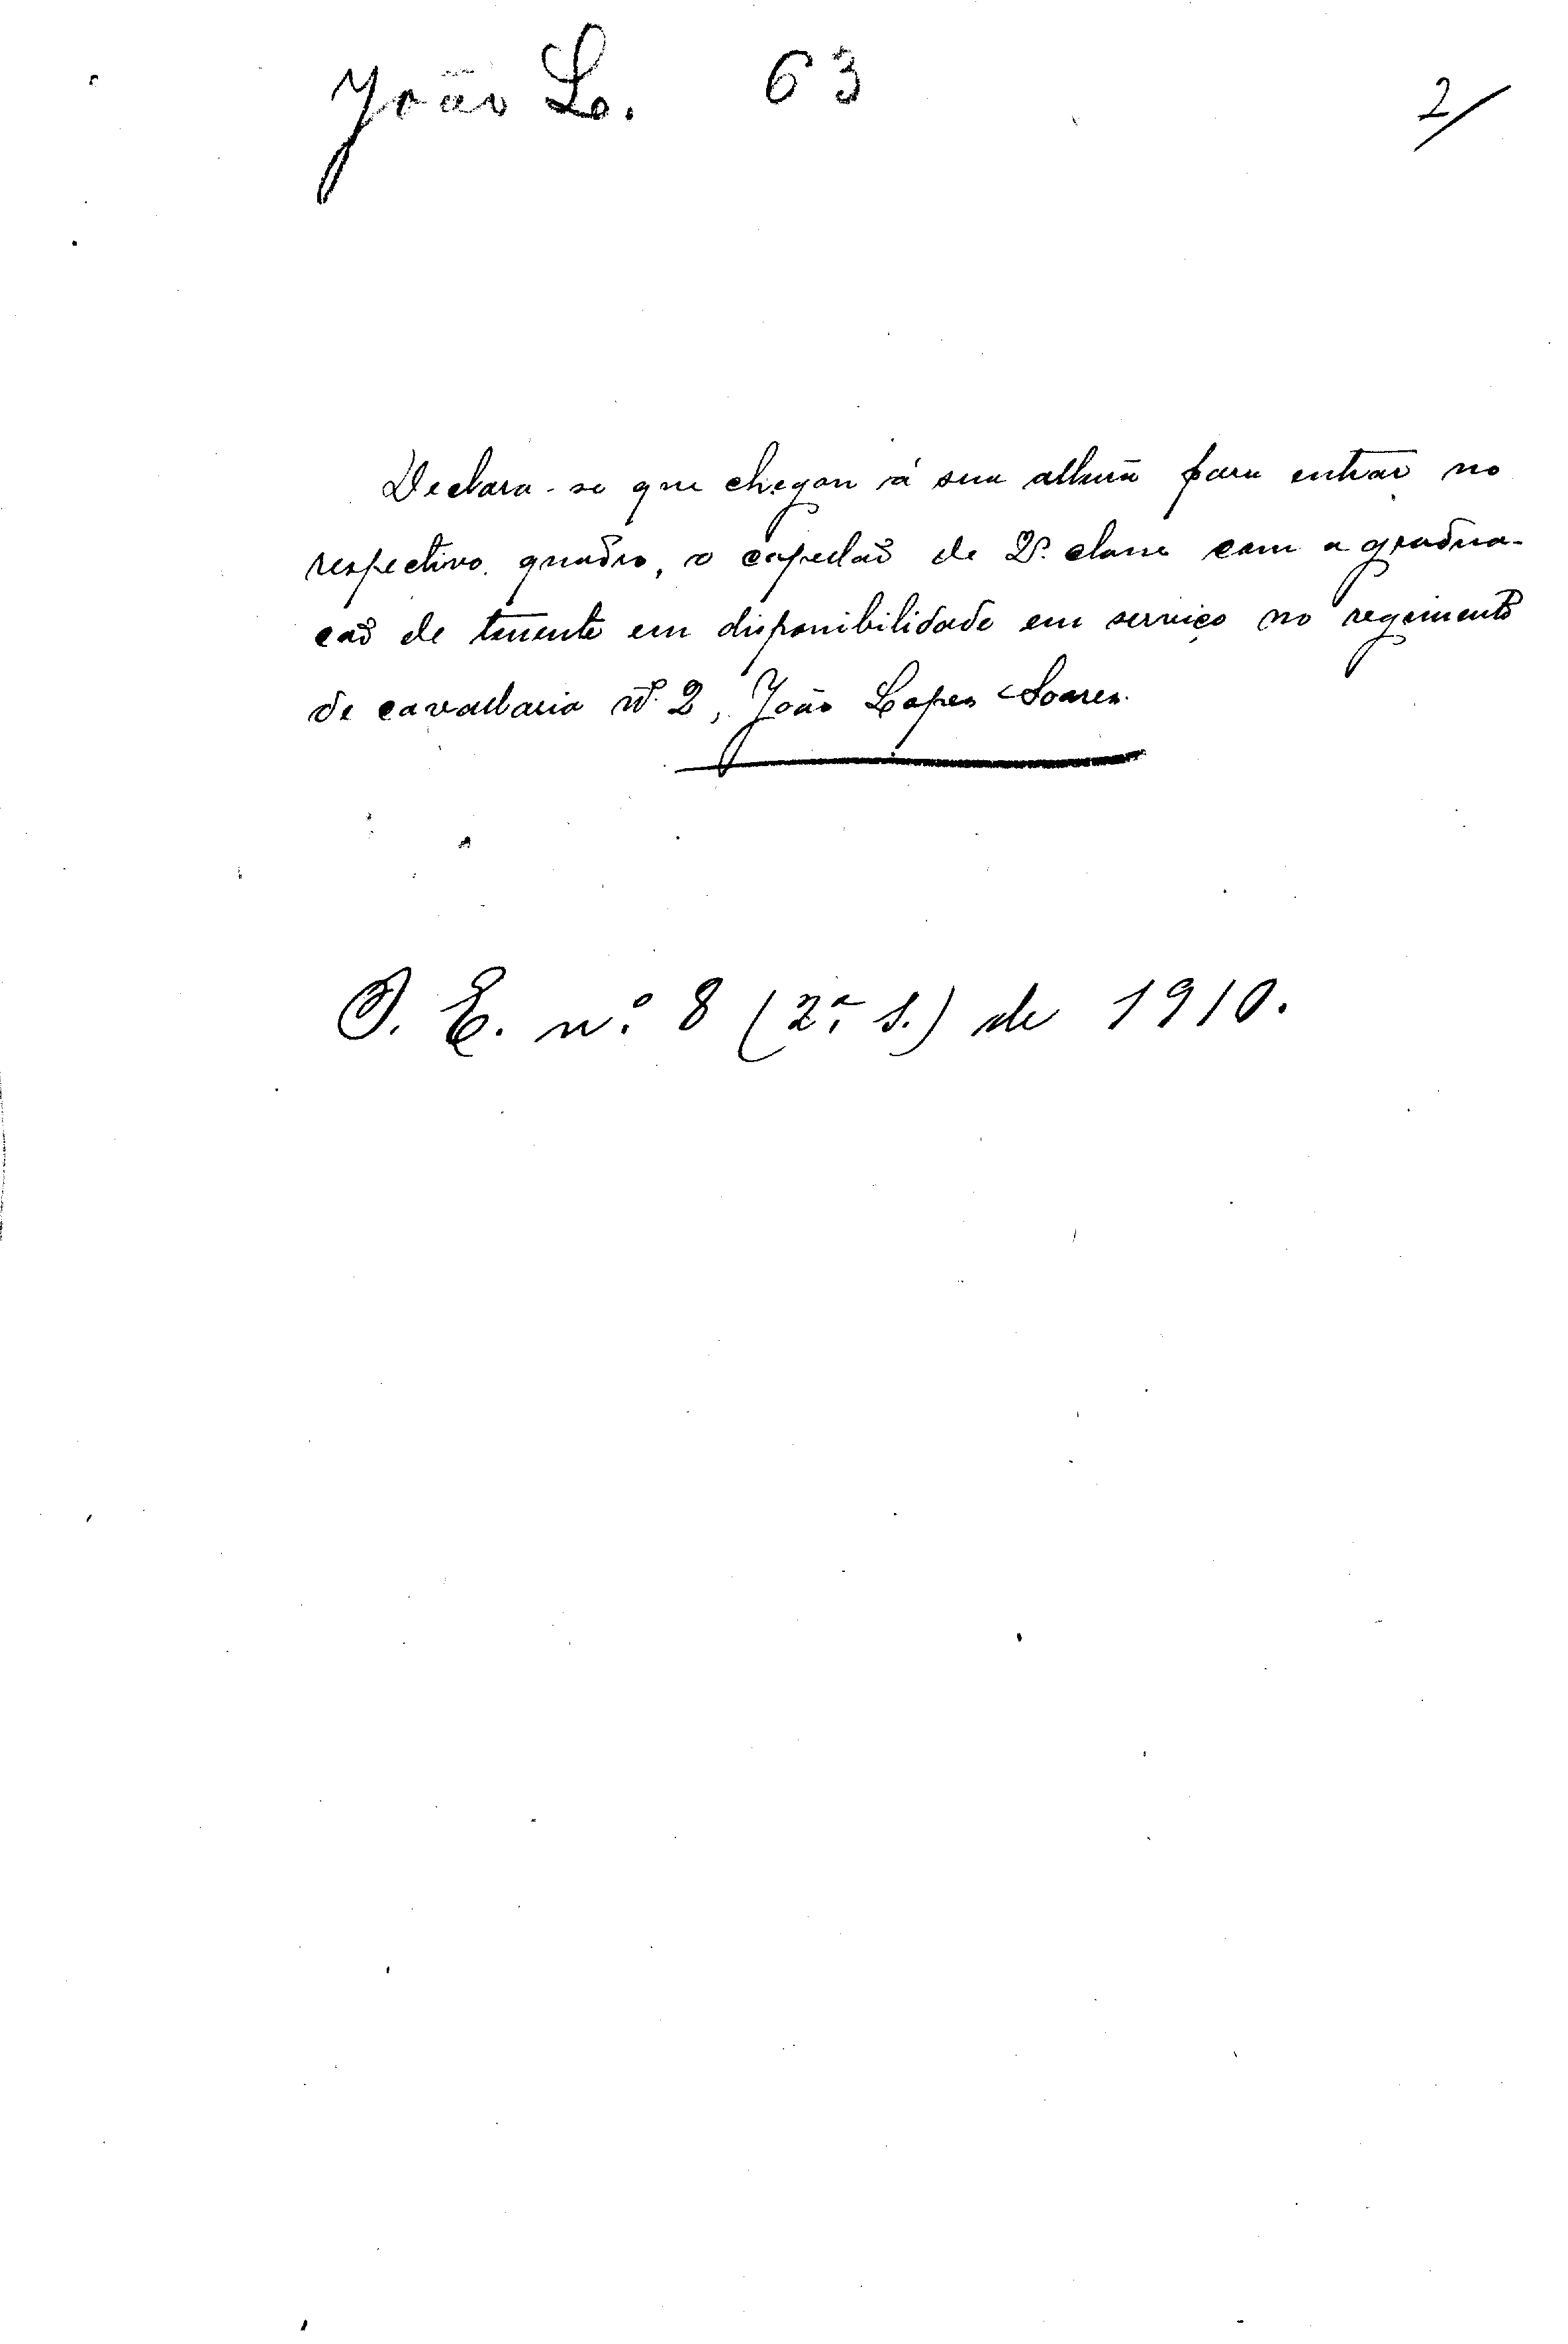 João L. 63 2/
Declara-se que chegou á sua altura para entrar no
respectivo quadro, o capelão de 2ª. classe com a gradua-
ção de tenente em disponibilidade em serviço no regimento
de cavallaria nº. 2, João Lopes Soares.
O. E. n.º 8 (2.ª S.) de 1910.